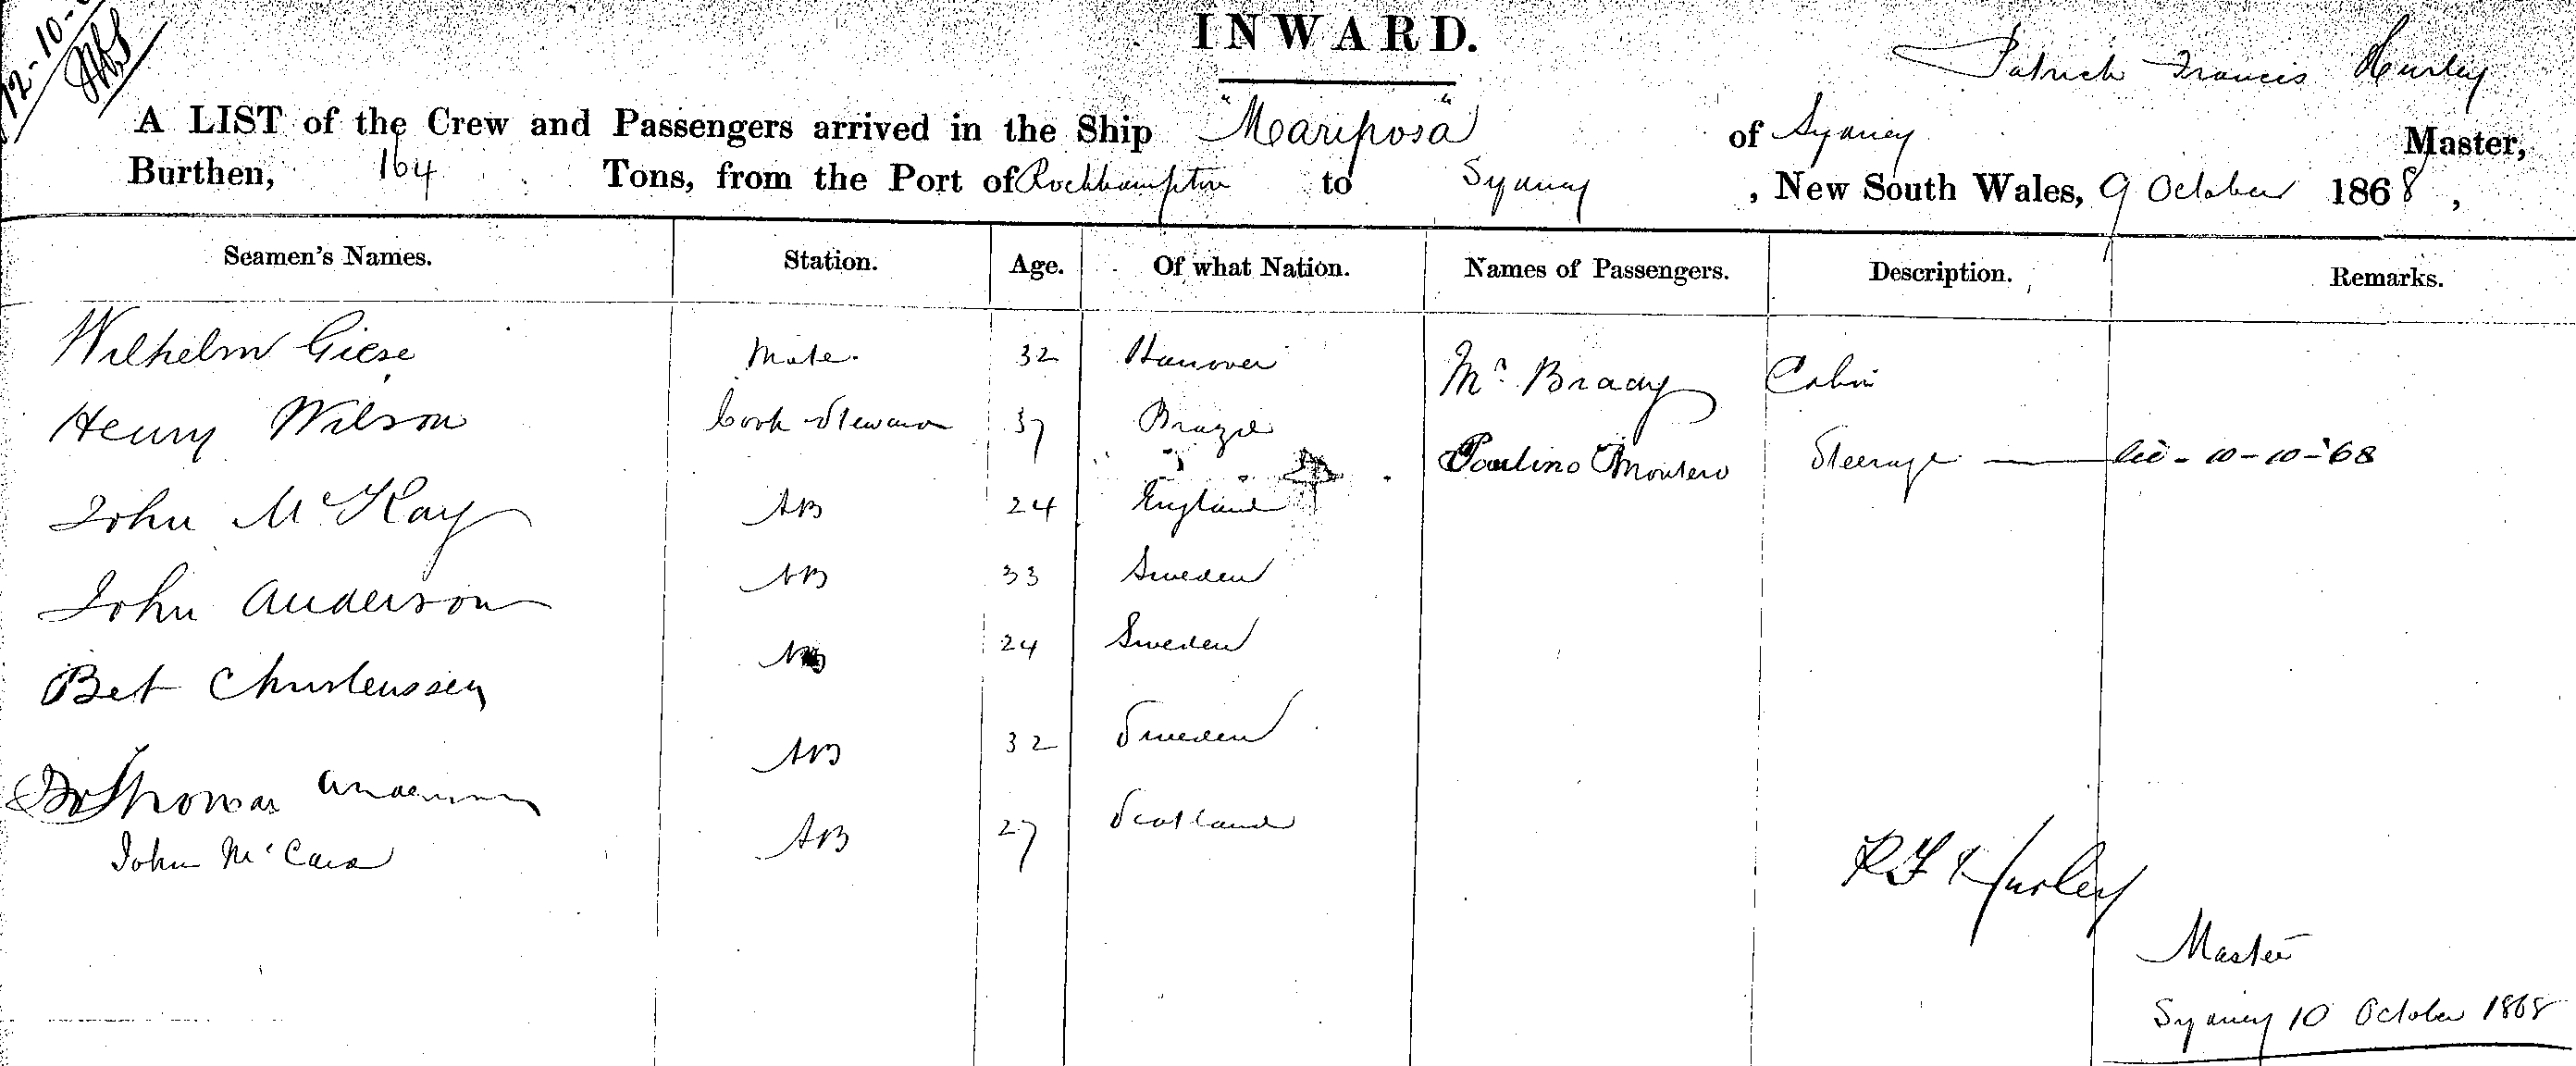 12-10-
INWARD.
Patrick Francis Hurley
A LIST of the Crew and Passengers arrived in the Ship "Mariposa" of Sydney Master,
Burthen, 164 Tons, from the Port of Rockhampton to Sydney, New South Wales, 9 October 1868,
Seamen's Names. Station. Age. Of what Nation. Names of Passengers. Description. Remarks.
Wilhelm Giese Mate. 32 Hanover Mr Brady Cabin
Henry Wilson Cook Steward 37 Brazil Paulino Montero Steerage 10-10-'68
John McKay AB 24 England
John Anderson AB 33 Sweden
Bet Christenssen AB 24 Sweden
Thomas Anderson AB 32 Sweden
John McCara AB 27 Scotland
P F Hurley
Master
Sydney 10 October 1868